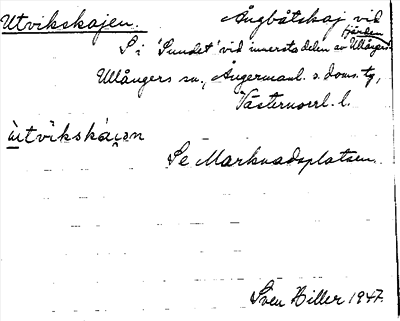 Utvikskajen. Ångbåtskaj vid
S i 'Sundet' vid innersta delen av Ullångersfjärden
Ullångers sn., Ångermanl. s. doms. tg,
Västernorrl. l.
ùtvikskáien
Se Marknadsplatsen.
Sven Hiller 1947.